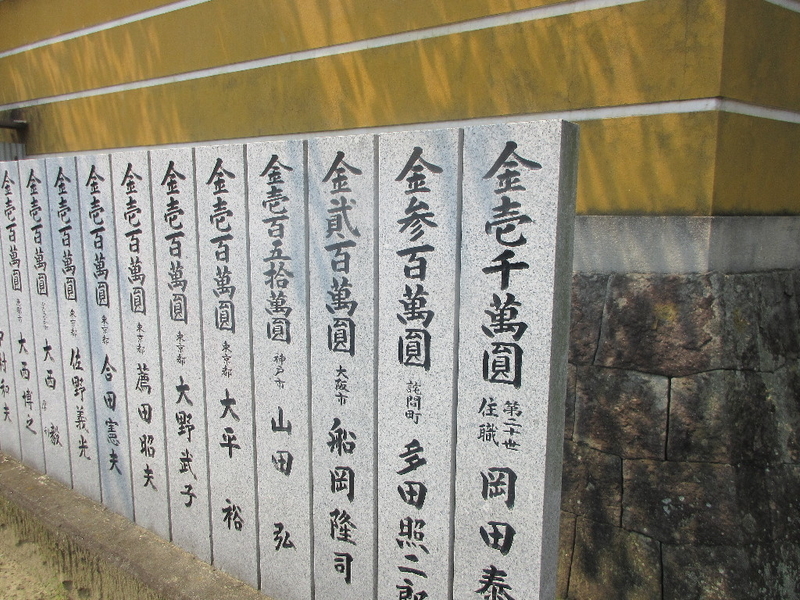 金壱千萬圓 第二十世 住職 岡田泰
金参百萬圓 詫間町 多田照二郎
金貳百萬圓 大阪市 船岡隆司
金壱百五拾萬圓 神戸市 山田弘
金壱百萬圓 東京都 大平裕
金壱百萬圓 東京都 大野武子
金壱百萬圓 東京都 薦田昭夫
金壱百萬圓 東京都 合田憲夫
金壱百萬圓 東京都 佐野義光
金壱百萬圓 大西毅
金壱百萬圓 大西博之
村和夫